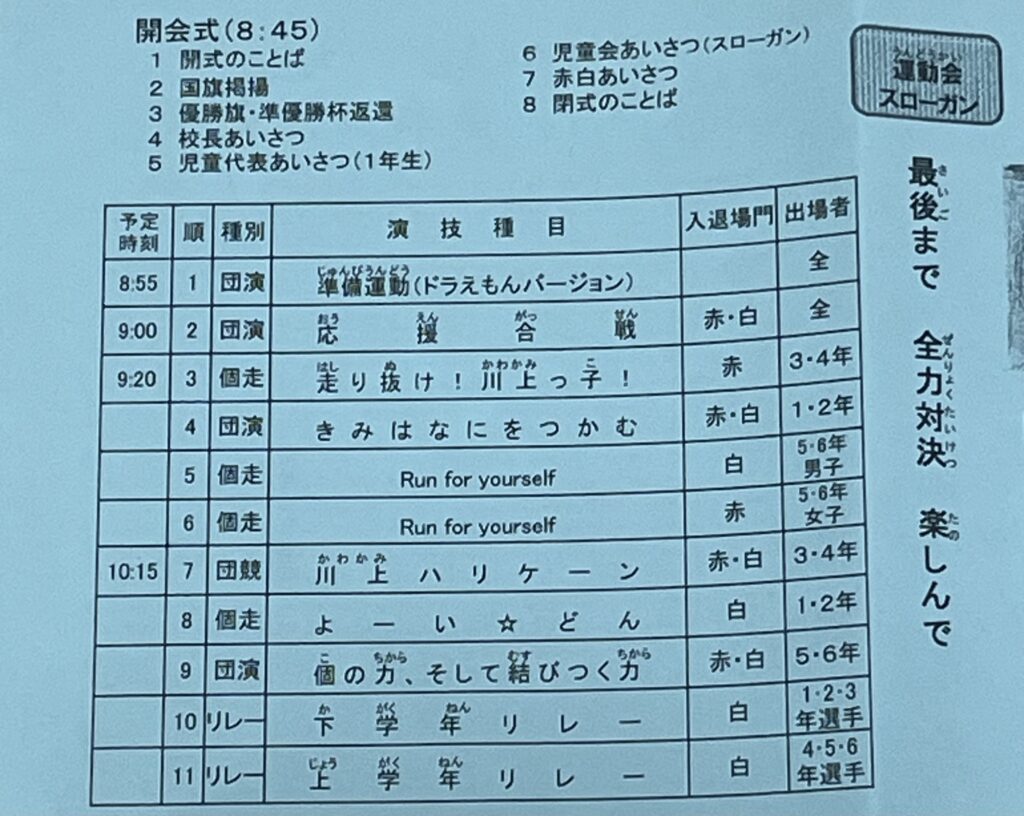 開会式(8:45)
1 開式のことば
2 国旗掲揚
3 優勝旗・準優勝杯返還
4 校長あいさつ
5 児童代表あいさつ(1年生)
6 児童会あいさつ(スローガン)
7 赤白あいさつ
8 閉式のことば
うんどうかい
運動会
スローガン
さいご ぜんりょくたいけつ たの
最後まで 全力対決 楽しんで
予定時刻 順 種別 演技種目 入退場門 出場者
じゅんびうんどう
8:55 1 団演 準備運動(ドラえもんバージョン) 全
おう えん がっ せん
9:00 2 団演 応援合戦 赤・白 全
はし ぬ かわかみ こ
9:20 3 個走 走り抜け!川上っ子! 赤 3・4年
4 団演 きみはなにをつかむ 赤・白 1・2年
5 個走 Run for yourself 白 5・6年男子
6 個走 Run for yourself 赤 5・6年女子
かわかみ
10:15 7 団競 川上ハリケーン 赤・白 3・4年
8 個走 よーい☆どん 白 1・2年
こ ちから むす ちから
9 団演 個の力、そして結びつく力 赤・白 5・6年
か がく ねん
10 リレー 下学年リレー 白 1・2・3年選手
じょう がく ねん
11 リレー 上学年リレー 白 4・5・6年選手